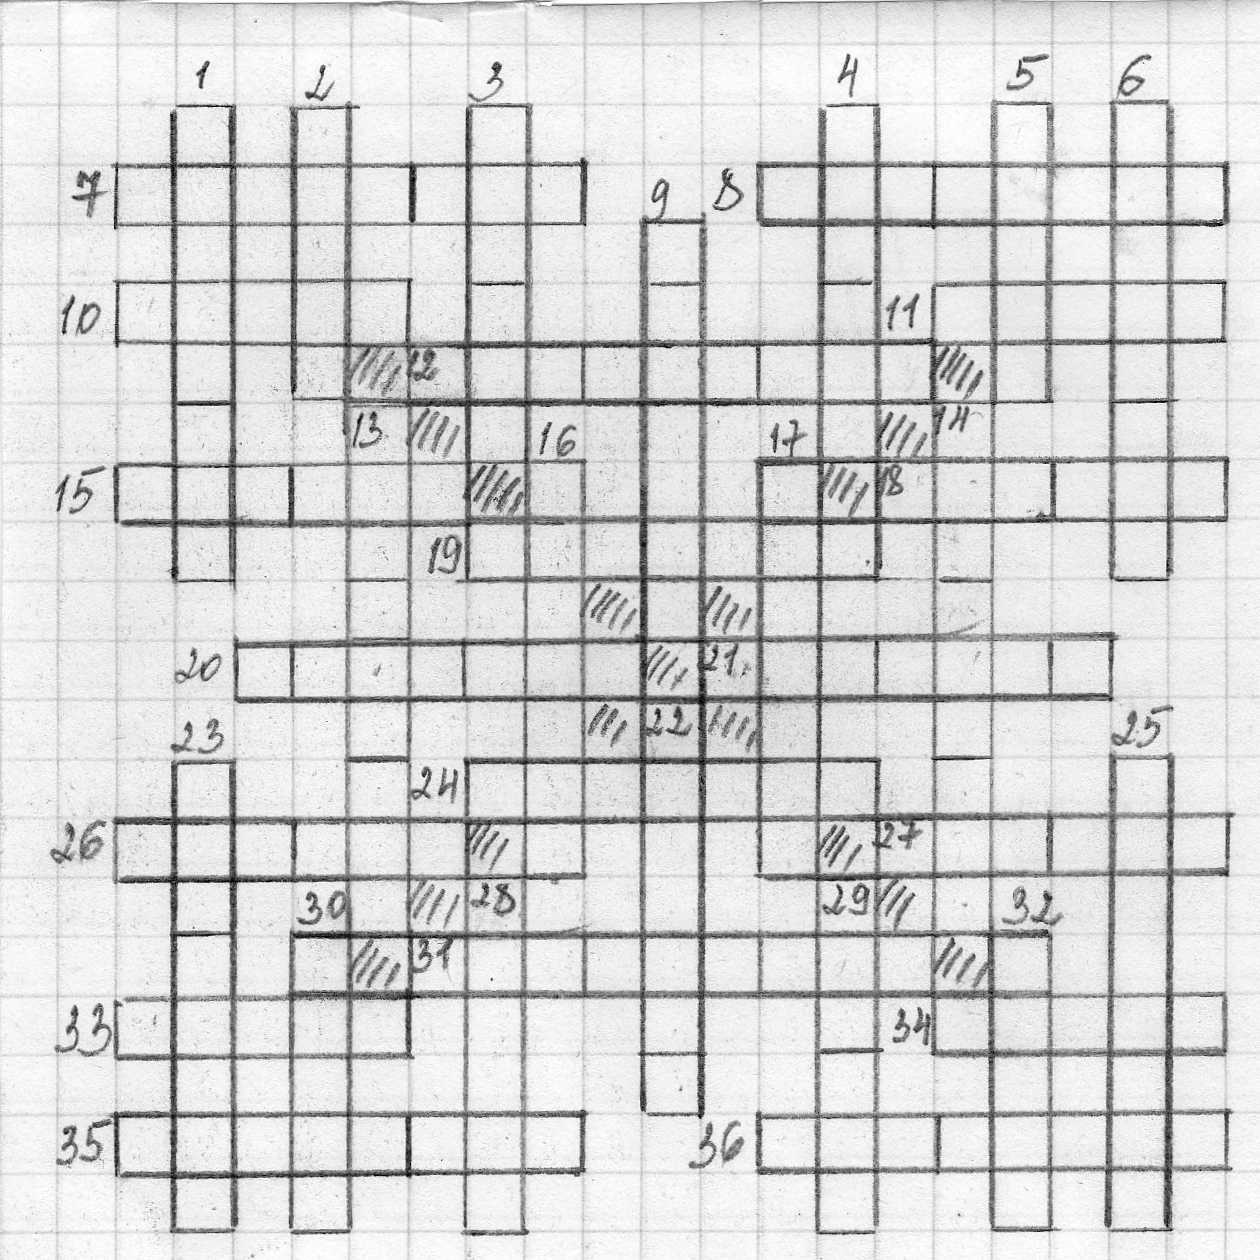 1 2 3 4 5 6
7 9 8
10 11
12
13 16 17 14
15 18
19
20 21
22
23 25
24
26 27
30 28 29 32
31
33 34
35 36